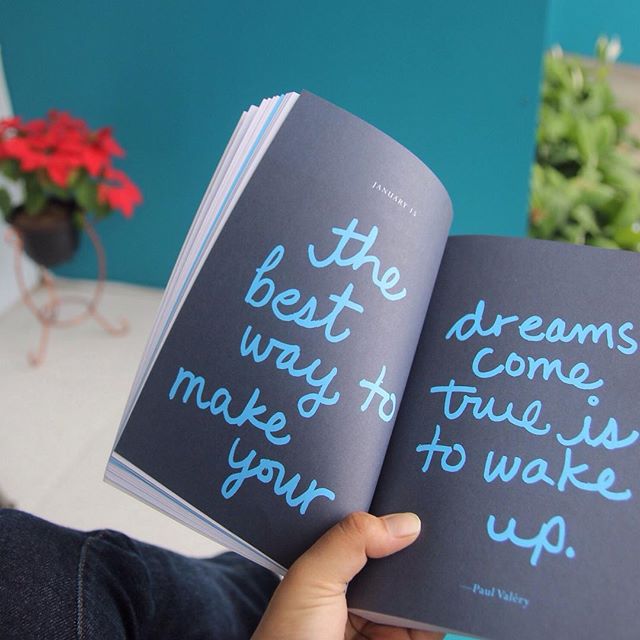 JANUARY 15
the
best
way to
make
your
dreams
come
true is
to wake
up.
—Paul Valéry